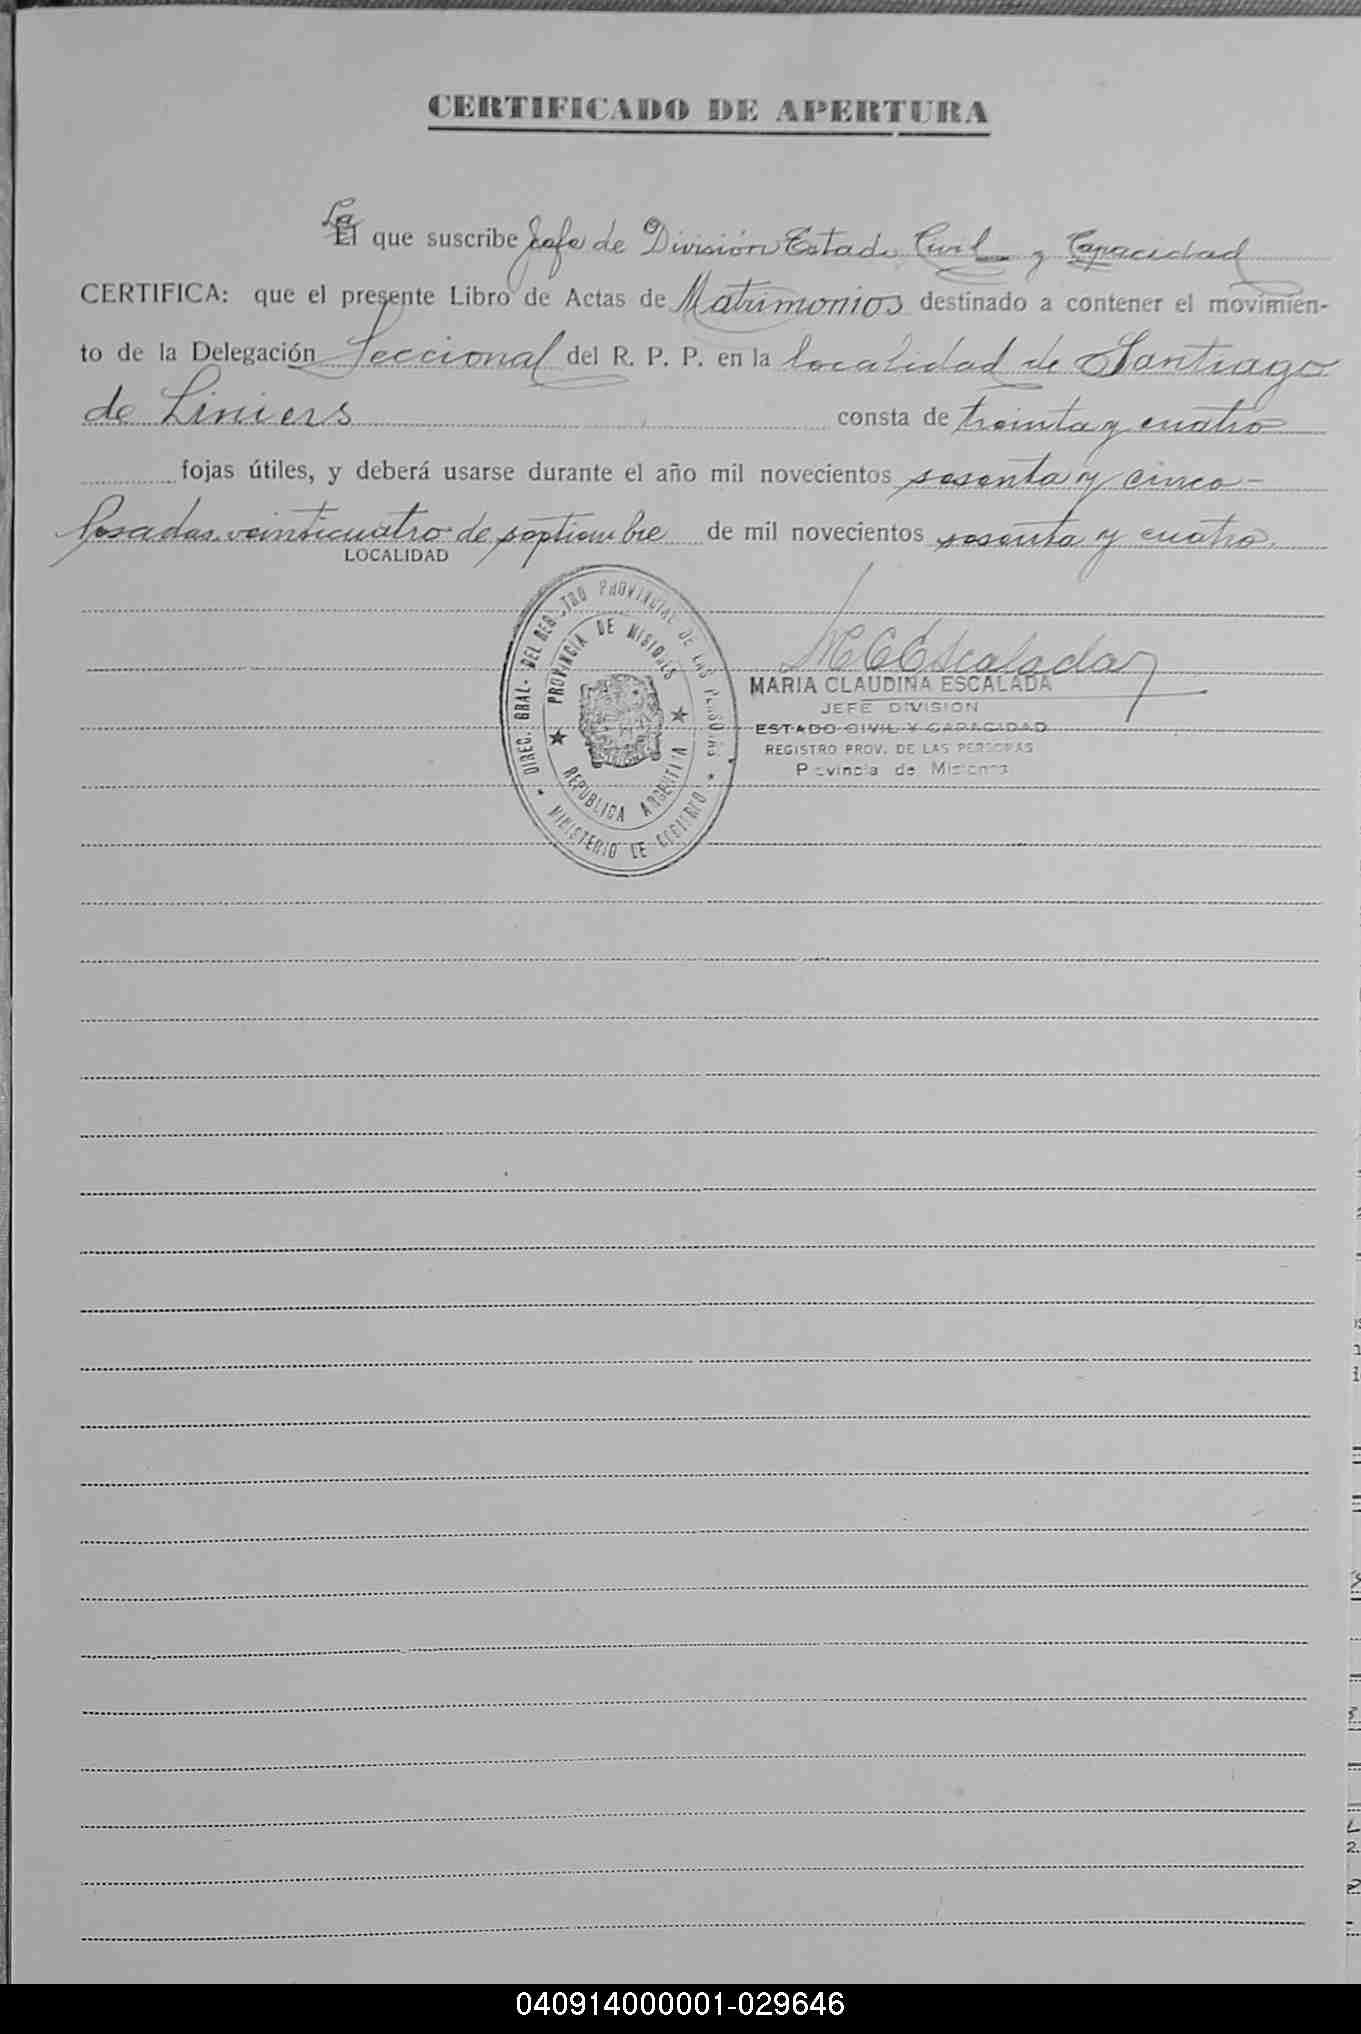 CERTIFICADO DE APERTURA
La
El que suscribe Jefe de División Estado Civil y Capacidad
CERTIFICA: que el presente Libro de Actas de Matrimonios destinado a contener el movimien-
to de la Delegación Seccional del R. P. P. en la localidad de Santiago
de Liniers consta de treinta y cuatro
fojas útiles, y deberá usarse durante el año mil novecientos sesenta y cinco-
Posadas, veinticuatro de septiembre de mil novecientos sesenta y cuatro.
LOCALIDAD
DIREC. GRAL. DEL REGISTRO PROVINCIAL DE LAS PERSONAS
PROVINCIA DE MISIONES
REPUBLICA ARGENTINA
MINISTERIO DE GOBIERNO
M C Escalada
MARIA CLAUDINA ESCALADA
JEFE DIVISION
ESTADO CIVIL Y CAPACIDAD
REGISTRO PROV. DE LAS PERSONAS
Provincia de Misiones
040914000001-029646